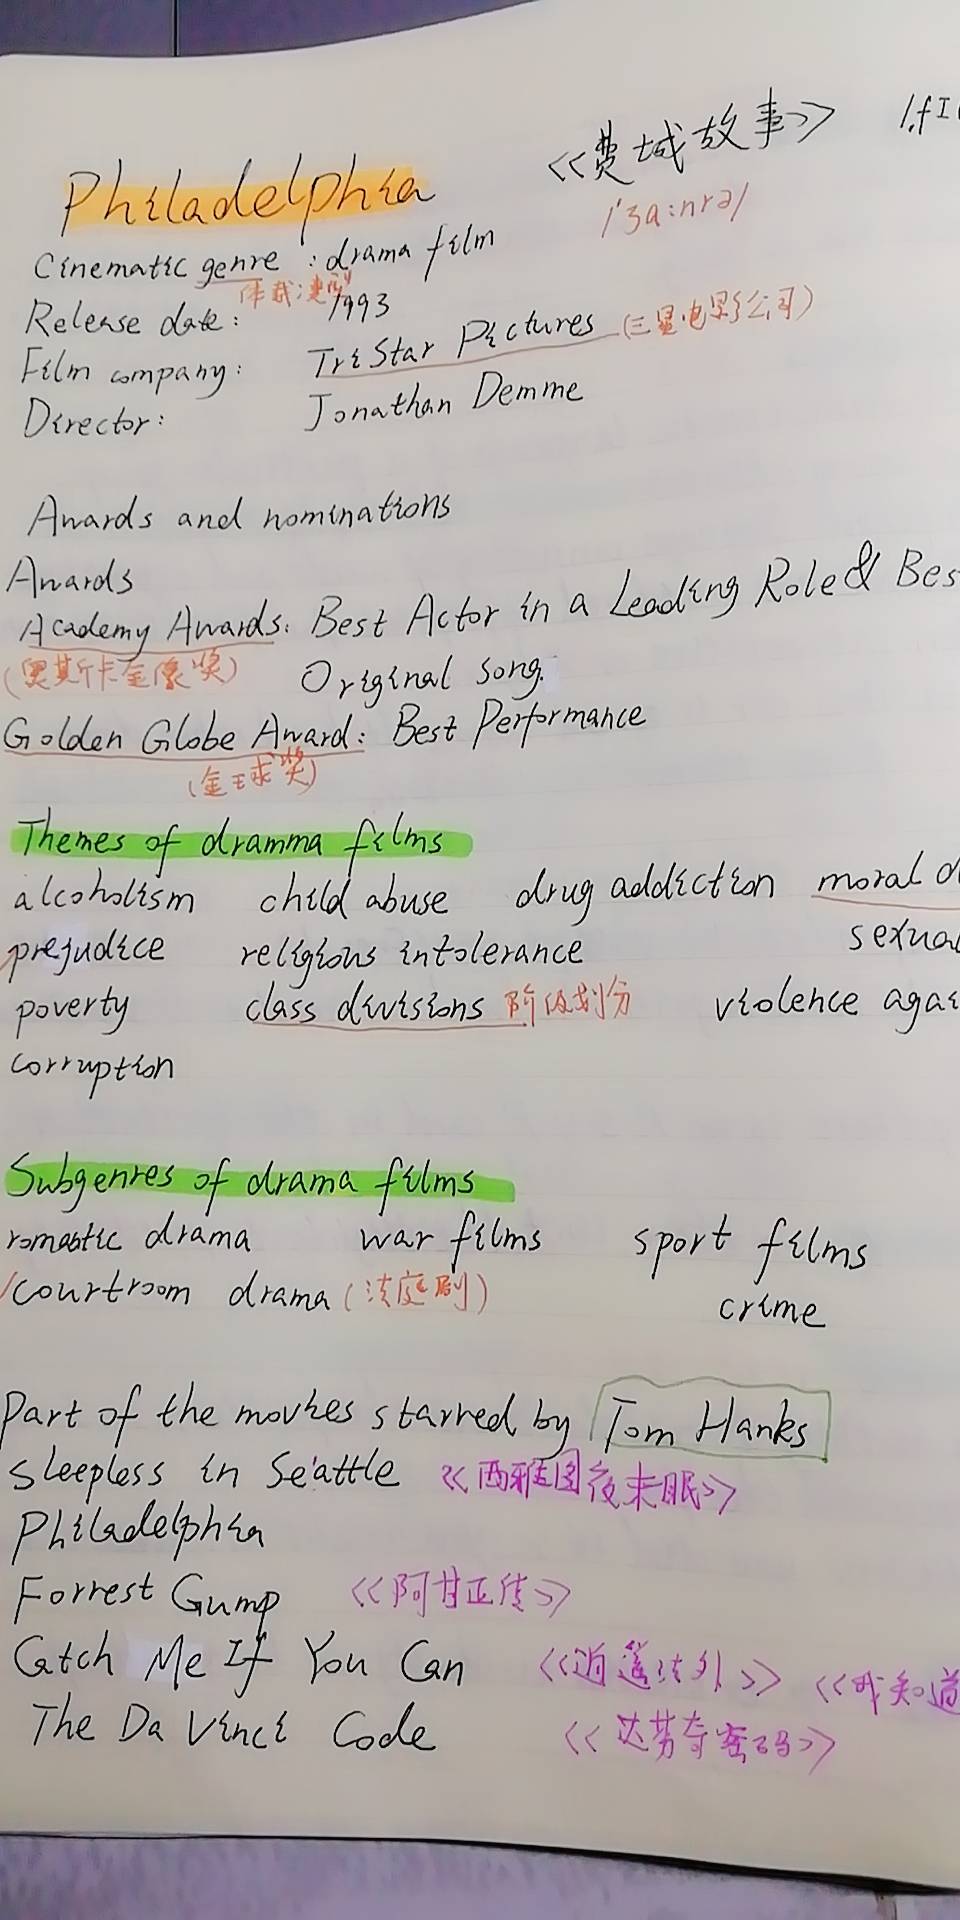 Philadelphia 《费城故事》 /ˌfɪ
/'ʒɑːnrə/
Cinematic genre : drama film
体裁;类型
Release date: 1993
Film company: TriStar Pictures (三星电影公司)
Director: Jonathan Demme
Awards and nominations
Awards
Academy Awards: Best Actor in a Leading Role & Bes
(奥斯卡金像奖) Original song.
Golden Globe Award: Best Performance
(金球奖)
Themes of dramma films
alcoholism child abuse drug addiction moral d
prejudice religious intolerance sexual
poverty class divisions 阶级划分 violence agai
corruption
Subgenres of drama films
romantic drama war films sport films
courtroom drama (法庭剧) crime
Part of the movies starred by Tom Hanks
Sleepless in Seattle 《西雅图夜未眠》
Philadelphia
Forrest Gump 《阿甘正传》
Catch Me If You Can 《逍遥法外》 《我知道
The Da Vinci Code 《达芬奇密码》